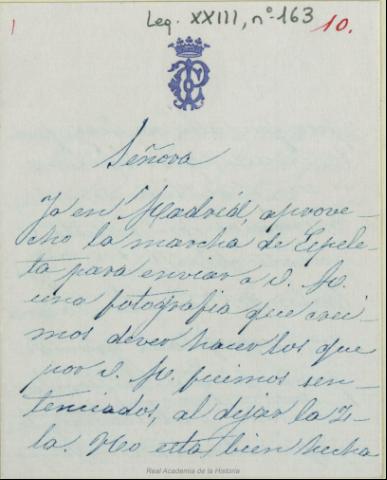 1
Leg. XXIII, nº 163
10.
Señora
Ya en Madrid, aprove-
cho la marcha de Espele-
ta para enviar a V. M.
una fotografia que crei-
mos dever hacer los que
por V. M. fuimos sen-
tenciados, al dejar la I-
la. No esta bien hecha
Real Academia de la Historia